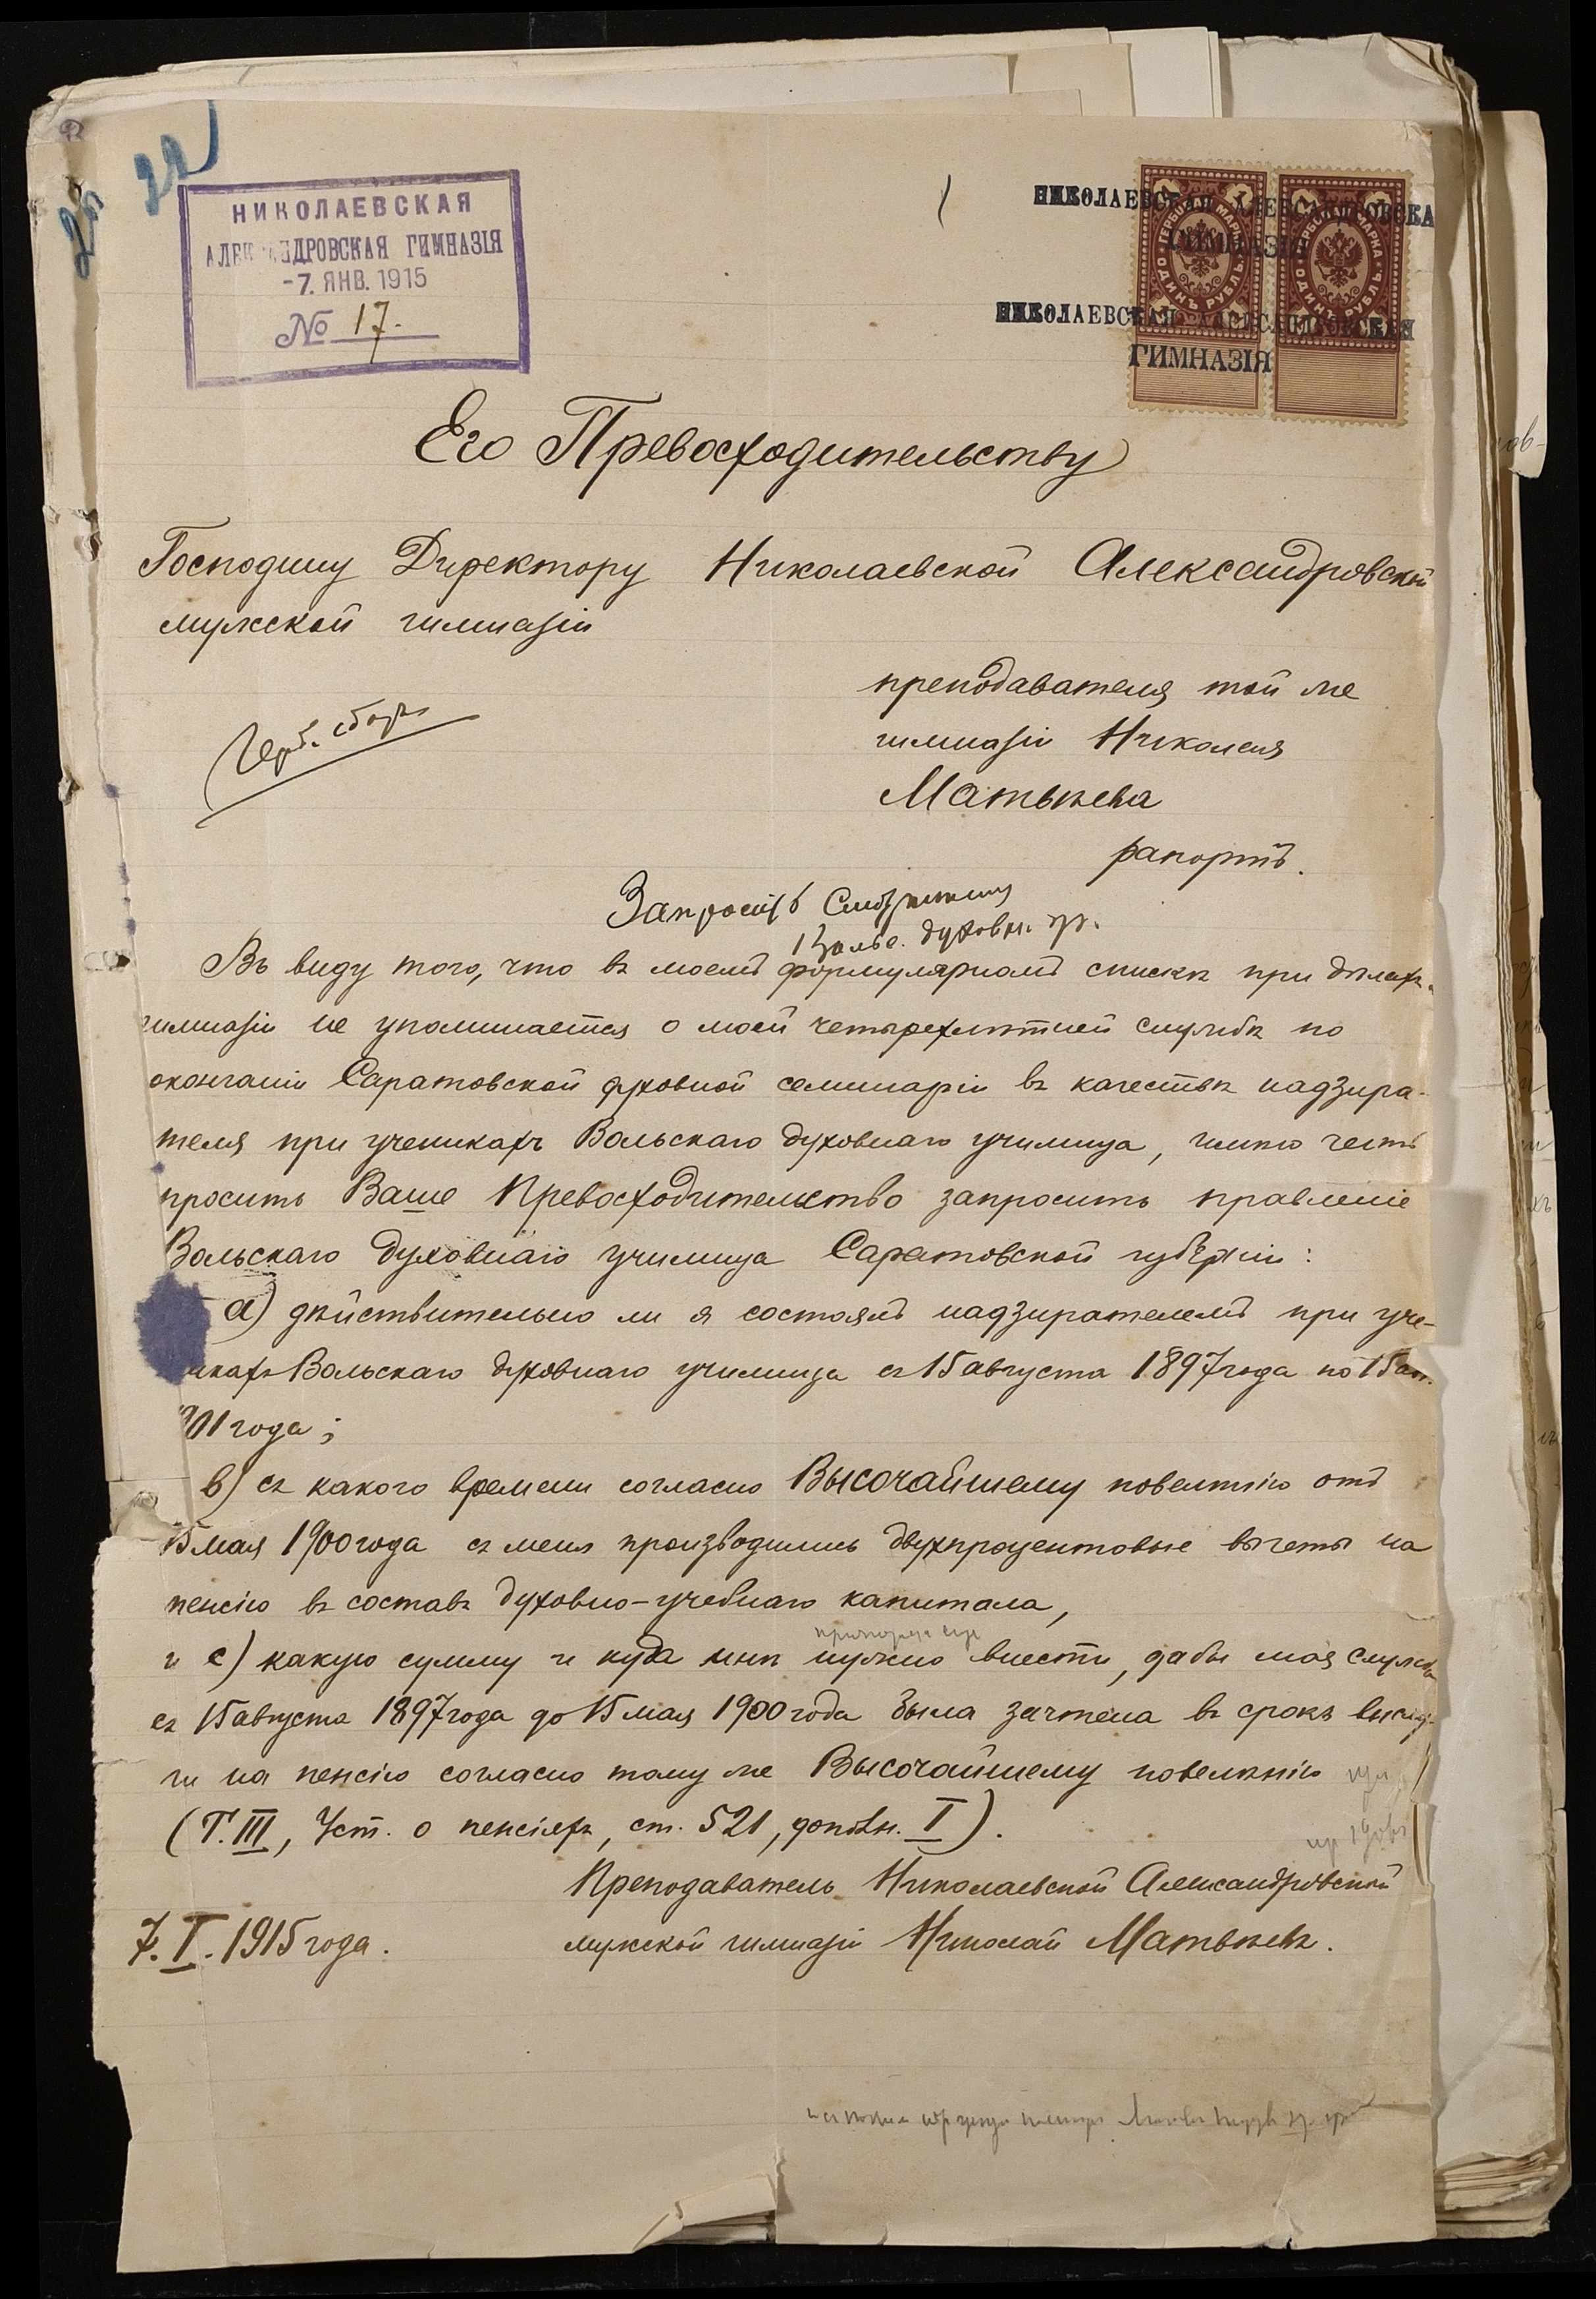 22
НИКОЛАЕВСКАЯ
АЛЕКСАНДРОВСКАЯ ГИМНАЗІЯ
-7. ЯНВ. 1915
№ 17.
НИКОЛАЕВСКАЯ АЛЕКСАНДРОВСКАЯ
ГИМНАЗІЯ
НИКОЛАЕВСКАЯ АЛЕКСАНДРОВСКАЯ
ГИМНАЗІЯ
ГЕРБОВАЯ МАРКА
ОДИНЪ РУБЛЬ
ГЕРБОВАЯ МАРКА
ОДИНЪ РУБЛЬ
Его Превосходительству
Господину Директору Николаевской Александровской
мужской гимназіи
преподавателя той же
гимназіи Николая
Матвѣева
рапортъ.
Герб. сборъ
Запросить Смотрителя
Вольс. духовн. уч.
Въ виду того, что въ моемъ формулярномъ спискѣ при дѣлахъ
гимназіи не упоминается о моей четырехлѣтней службѣ по
окончаніи Саратовской духовной семинаріи въ качествѣ надзира-
теля при ученикахъ Вольскаго духовнаго училища, имѣю честь
просить Ваше Превосходительство запросить правленіе
Вольскаго духовнаго училища Саратовской губерніи:
а) дѣйствительно ли я состоялъ надзирателемъ при уче-
никахъ Вольскаго духовнаго училища съ 15 августа 1897 года по 15 авг.
1901 года;
в) съ какого времени согласно Высочайшему повелѣнію отъ
15 мая 1900 года съ меня производились двухпроцентовые вычеты на
пенсію въ составъ духовно-учебнаго капитала,
и с) какую сумму и куда мнѣ нужно внести, дабы моя служба
съ 15 августа 1897 года до 15 мая 1900 года была зачтена въ срокъ выслу-
ги на пенсію согласно тому же Высочайшему повелѣнію
(Т. III, Уст. о пенсіяхъ, ст. 521, дополн. I).
Преподаватель Николаевской Александровской
7. I. 1915 года.
мужской гимназіи Николай Матвѣевъ.